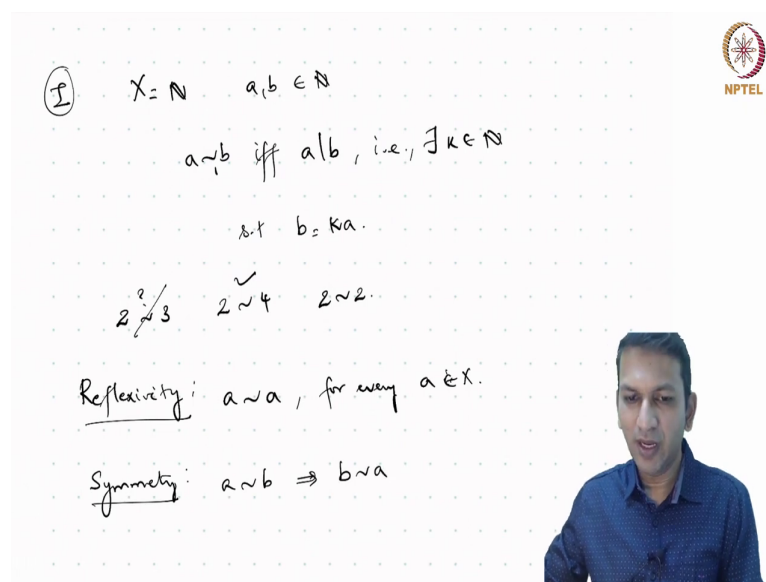 NPTEL
I X = ℕ a, b ∈ ℕ
a ~ b iff a|b, i.e., ∃ K ∈ ℕ
s.t b = Ka.
2 ≁ 3 ? 2 ~ 4 ✓ 2 ~ 2.
Reflexivity: a ~ a, for every a ∈ X.
Symmetry: a ~ b ⇒ b ~ a